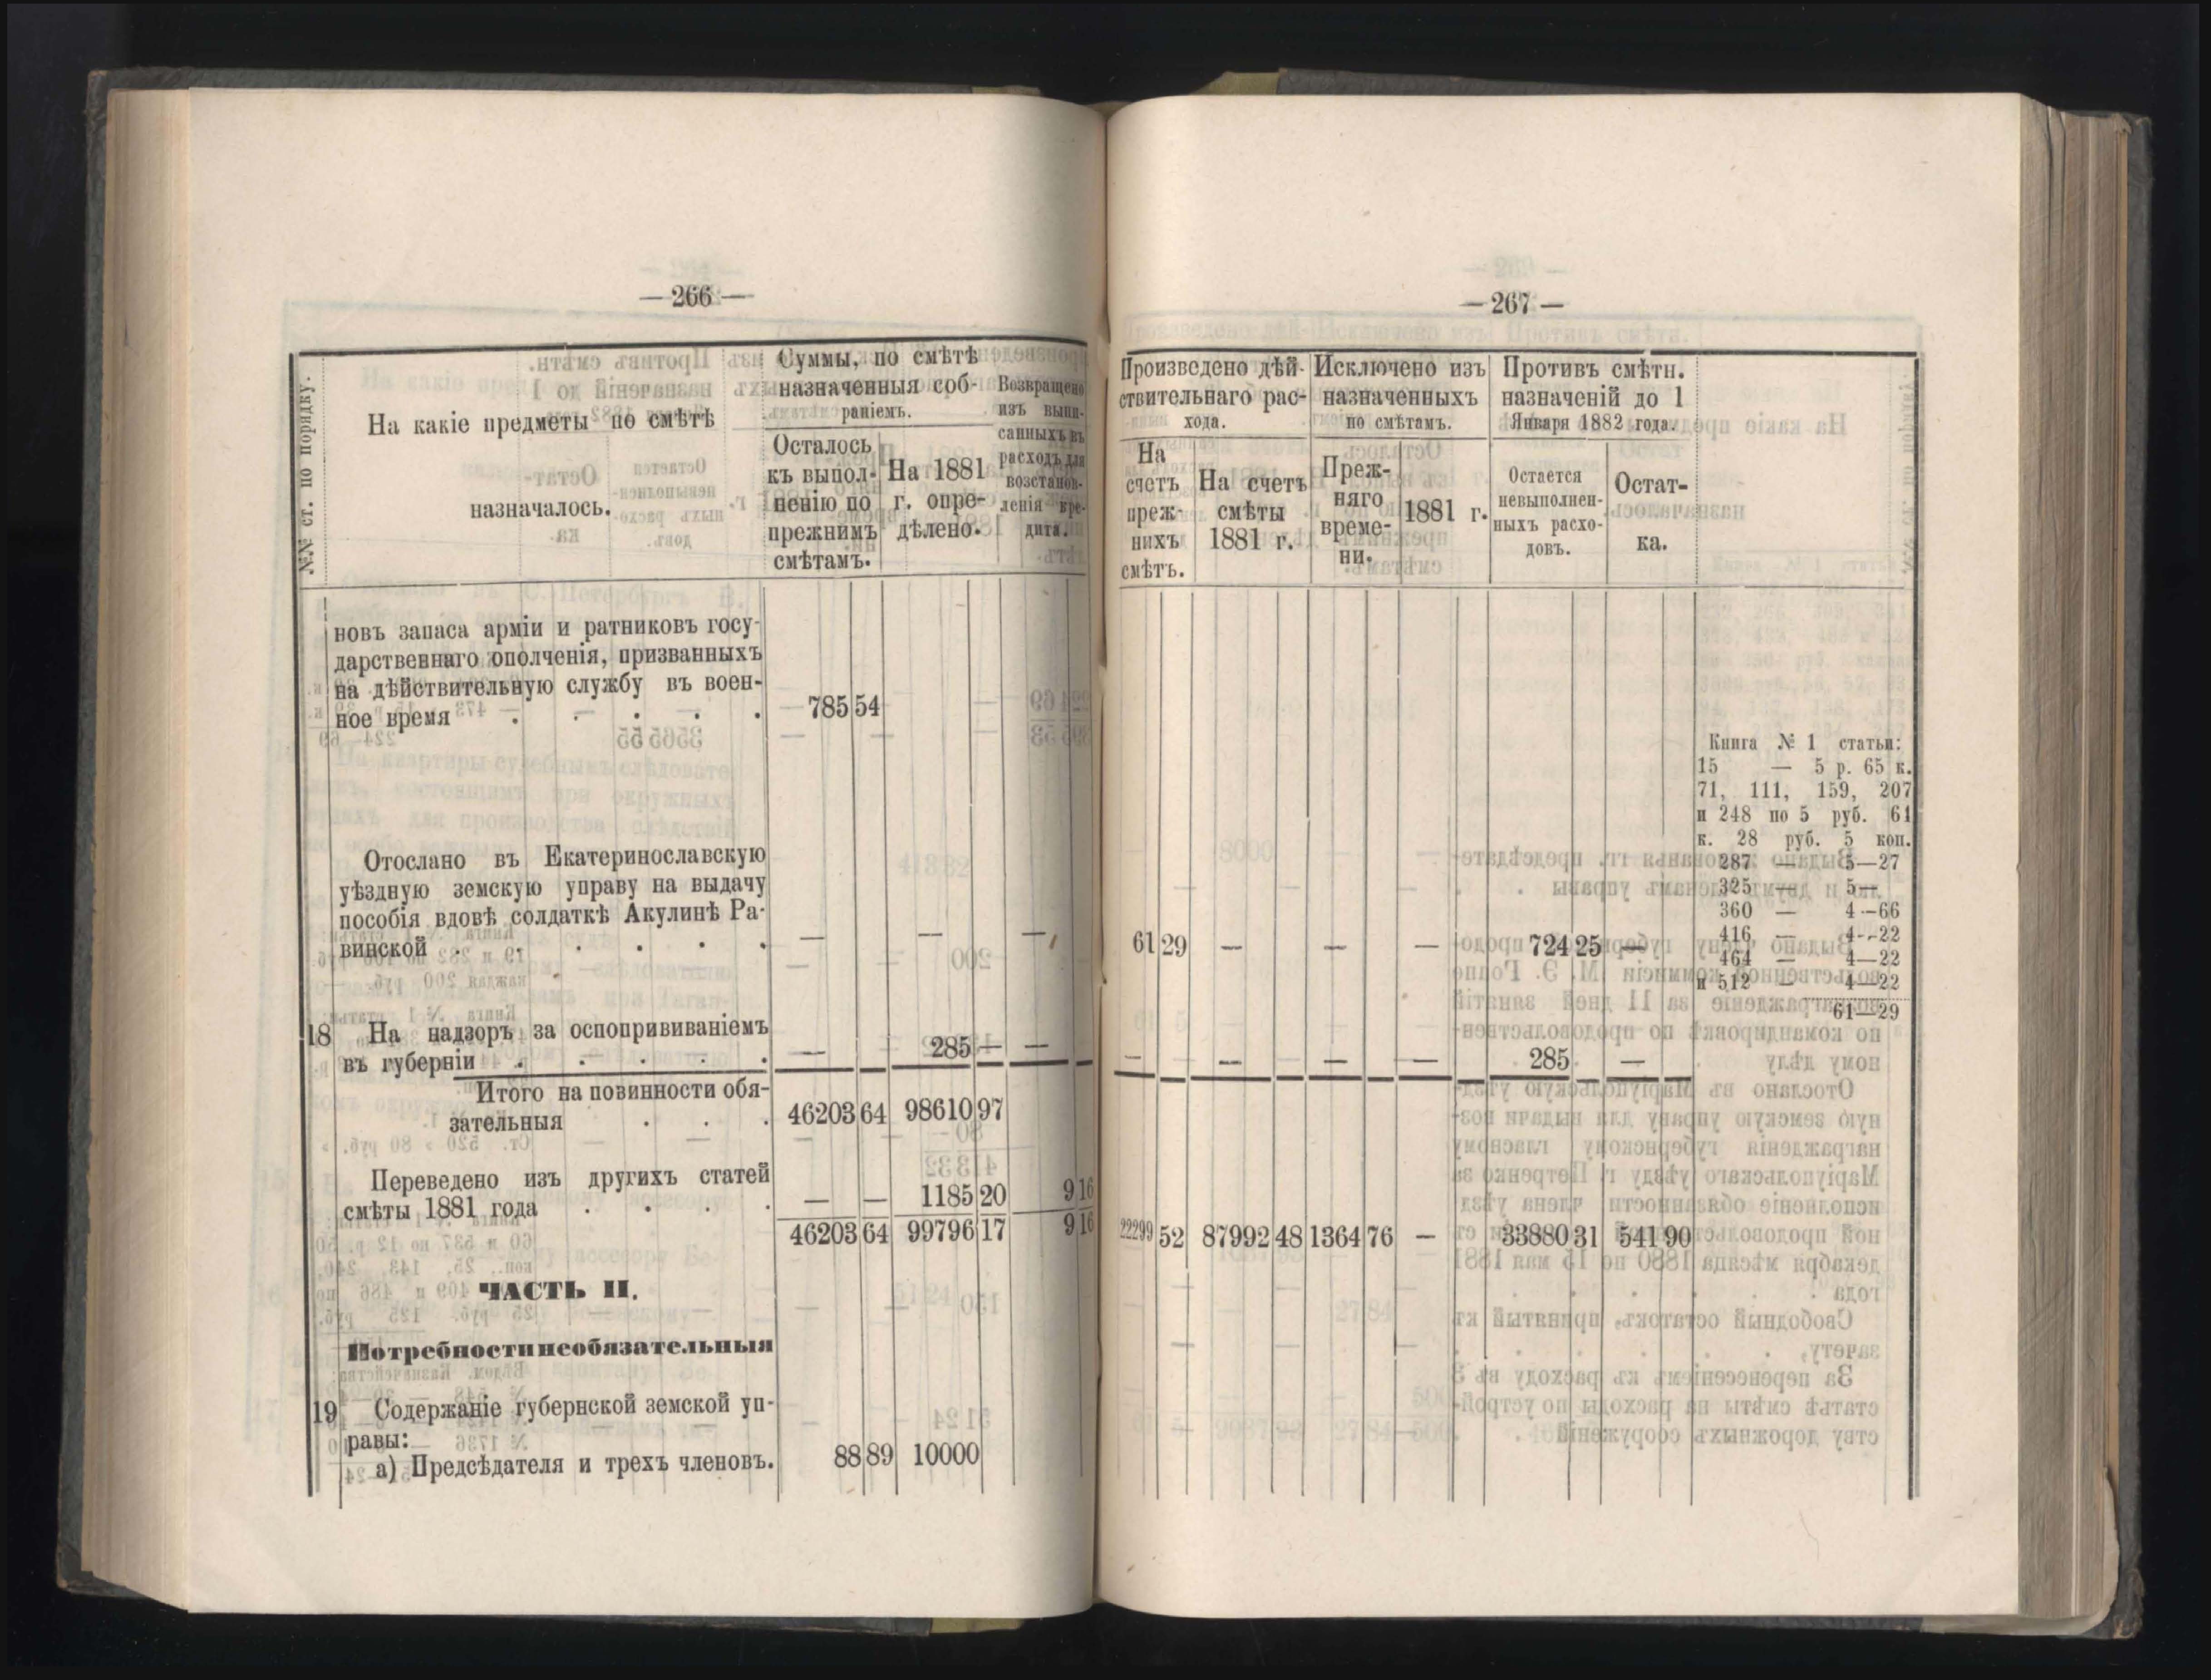 — 266 —
№№ ст. по порядку.
На какіе предметы по смѣтѣ
назначалось.
Суммы, по смѣтѣ
назначенныя соб-
раніемъ.
Осталось
къ выпол-
ненію по
прежнимъ
смѣтамъ.
На 1881
г. опре-
дѣлено.
Возвращено
изъ выпи-
санныхъ въ
расходъ для
возстанов-
ленія кре-
дита.
новъ запаса арміи и ратниковъ госу-
дарственнаго ополченія, призванныхъ
на дѣйствительную службу въ воен-
ное время . . . . . 785 54
Отослано въ Екатеринославскую
уѣздную земскую управу на выдачу
пособія вдовѣ солдаткѣ Акулинѣ Ра-
винской . . . . . — — —
18 На надзоръ за оспопрививаніемъ
въ губерніи . . . . . — 285 — —
Итого на повинности обя-
зательныя . . . 46203 64 98610 97
Переведено изъ другихъ статей
смѣты 1881 года . . . . — — 1185 20 9 16
46203 64 99796 17 9 16
ЧАСТЬ II.
Потребности необязательныя
19 Содержаніе губернской земской уп-
равы:
а) Предсѣдателя и трехъ членовъ. 88 89 10000
— 267 —
Произведено дѣй-
ствительнаго рас-
хода.
На
счетъ
преж-
нихъ
смѣтъ.
На счетъ
смѣты
1881 г.
Исключено изъ
назначенныхъ
по смѣтамъ.
Преж-
няго
време-
ни.
1881 г.
Противъ смѣтн.
назначеній до 1
Января 1882 года.
Остается
невыполнен-
ныхъ расхо-
довъ.
Остат-
ка.
Книга № 1 статьи:
15 — 5 р. 65 к.
71, 111, 159, 207
и 248 по 5 руб. 61
к. 28 руб. 5 коп.
287 — 5—27
325 — 5—
360 — 4—66
416 — 4—22
464 — 4—22
и 512 — 4—22
61—29
61 29 — — — 724 25 —
— — — — 285 —
22299 52 87992 48 1364 76 — 33880 31 541 90